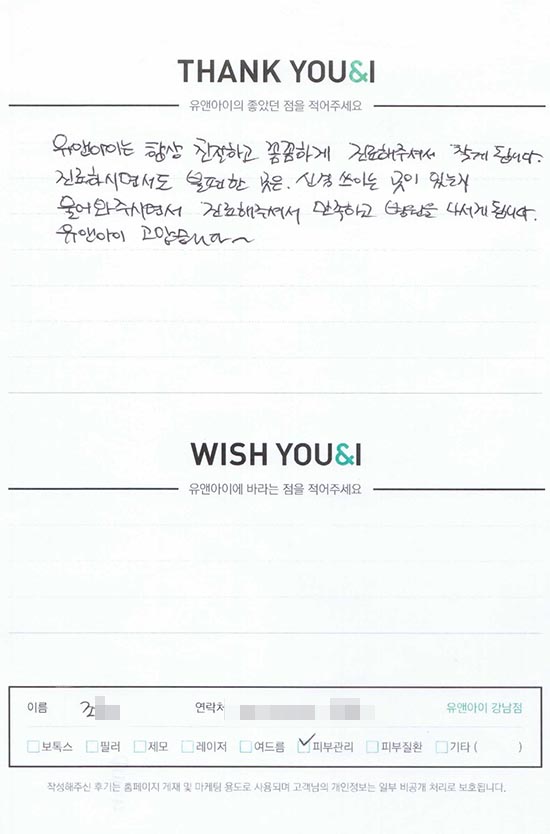 THANK YOU&I
유앤아이의 좋았던 점을 적어주세요
유앤아이는 항상 친절하고 꼼꼼하게 진료해주셔서 찾게 됩니다.
진료하시면서도 불편한 곳은, 신경 쓰이는 곳이 있는지
물어봐주시면서 진료해주셔서 만족하고 병원을 나서게 됩니다.
유앤아이 고맙습니다~
WISH YOU&I
유앤아이에 바라는 점을 적어주세요
이름 조 연락처 유앤아이 강남점
보톡스 필러 제모 레이저 여드름 피부관리 피부질환 기타 ( )
작성해주신 후기는 홈페이지 게재 및 마케팅 용도로 사용되며 고객님의 개인정보는 일부 비공개 처리로 보호됩니다.